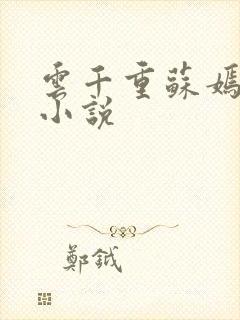 雲千重蘇嫣
小說
鄭鉞